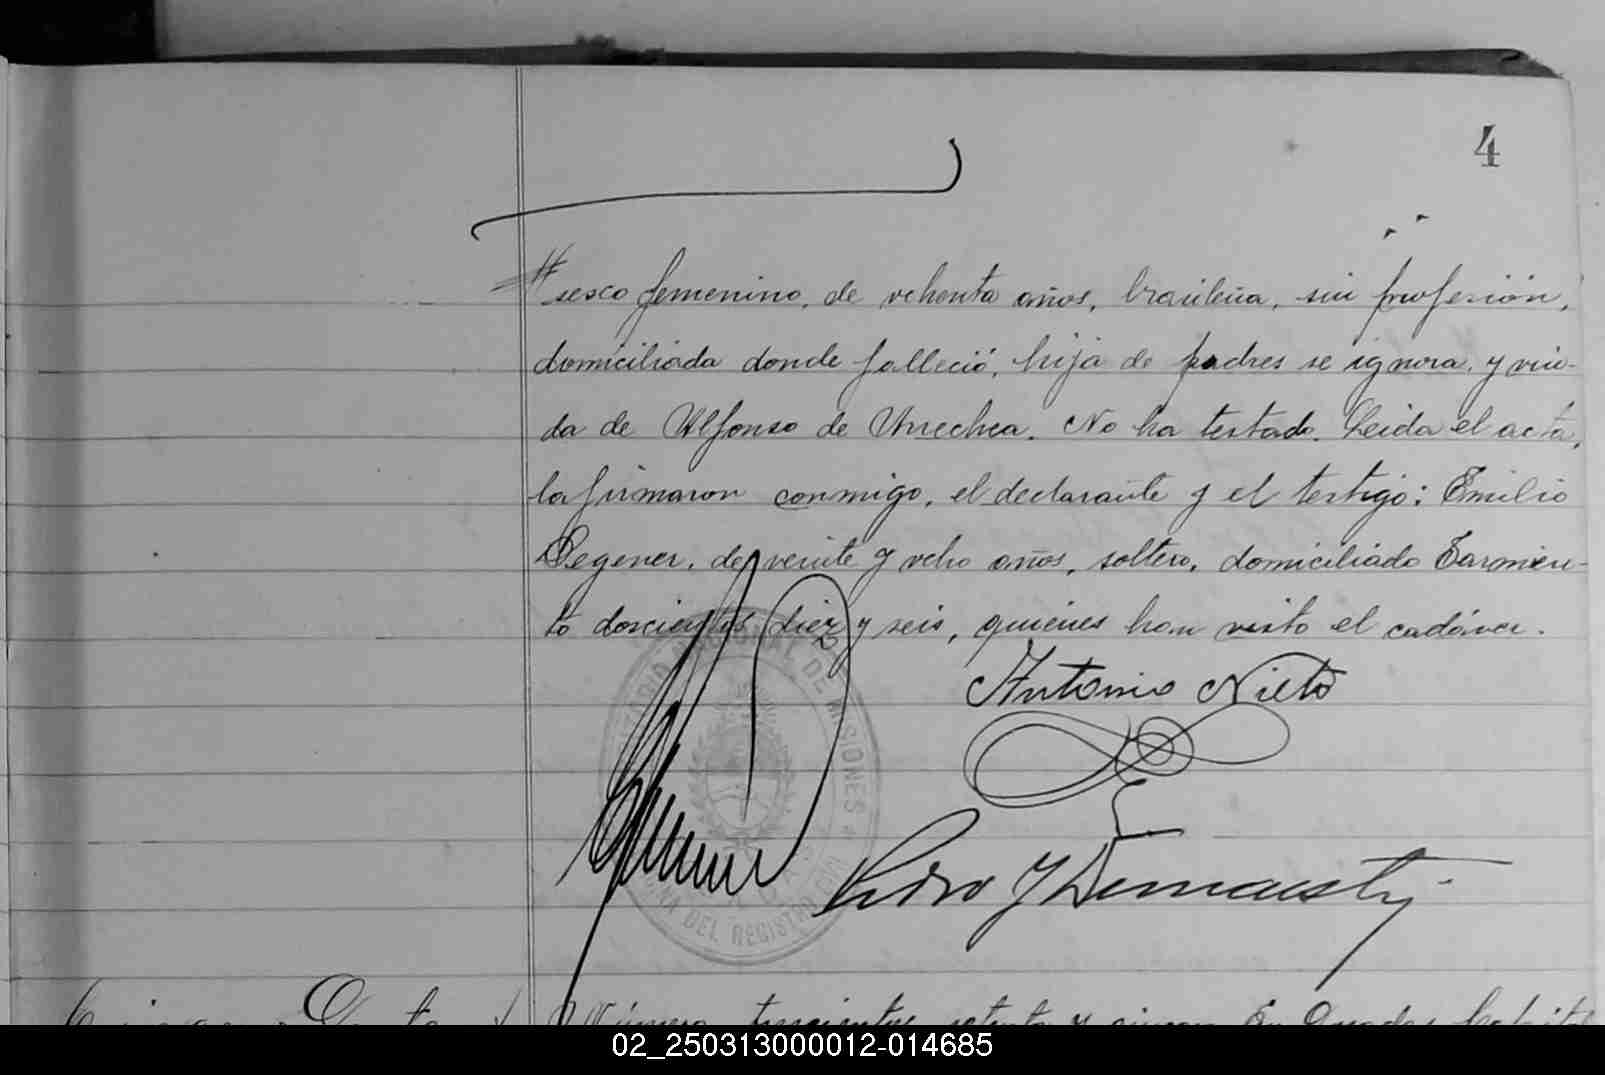 4
sexo femenino, de ochenta años, brasileña, sin profesión,
domiciliada donde falleció, hija de padres se ignora, y viu-
da de Alfonso de Urrechea. No ha testado. Leida el acta,
la firmaron conmigo, el declarante y el testigo: Emilio
Degener, de veinte y ocho años, soltero, domiciliado Sarmien-
to doscientos diez y seis, quienes han visto el cadáver.
Antonio Nieto
DE MISIONES
DEL REGISTRO
Pedro J
Número trescientos setenta y cinco. En Posadas Capital
02_250313000012-014685